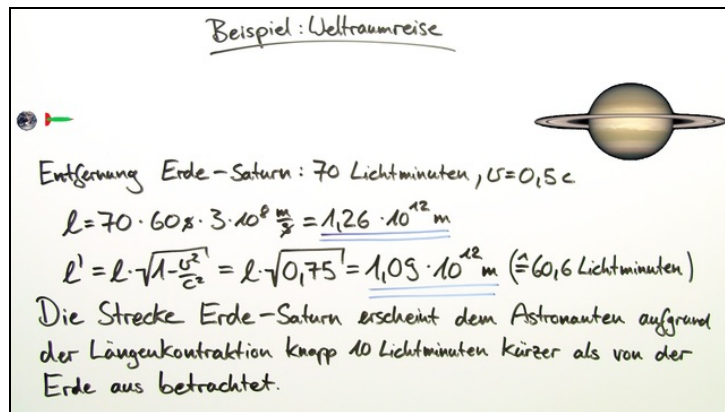 Beispiel: Weltraumreise
Entfernung Erde-Saturn: 70 Lichtminuten, v=0,5c
l=70·60s·3·10⁸ m/s = 1,26·10¹² m
l' = l·√(1-v²/c²) = l·√0,75 = 1,09·10¹² m (≙60,6 Lichtminuten)
Die Strecke Erde-Saturn erscheint dem Astronauten aufgrund
der Längenkontraktion knapp 10 Lichtminuten kürzer als von der
Erde aus betrachtet.